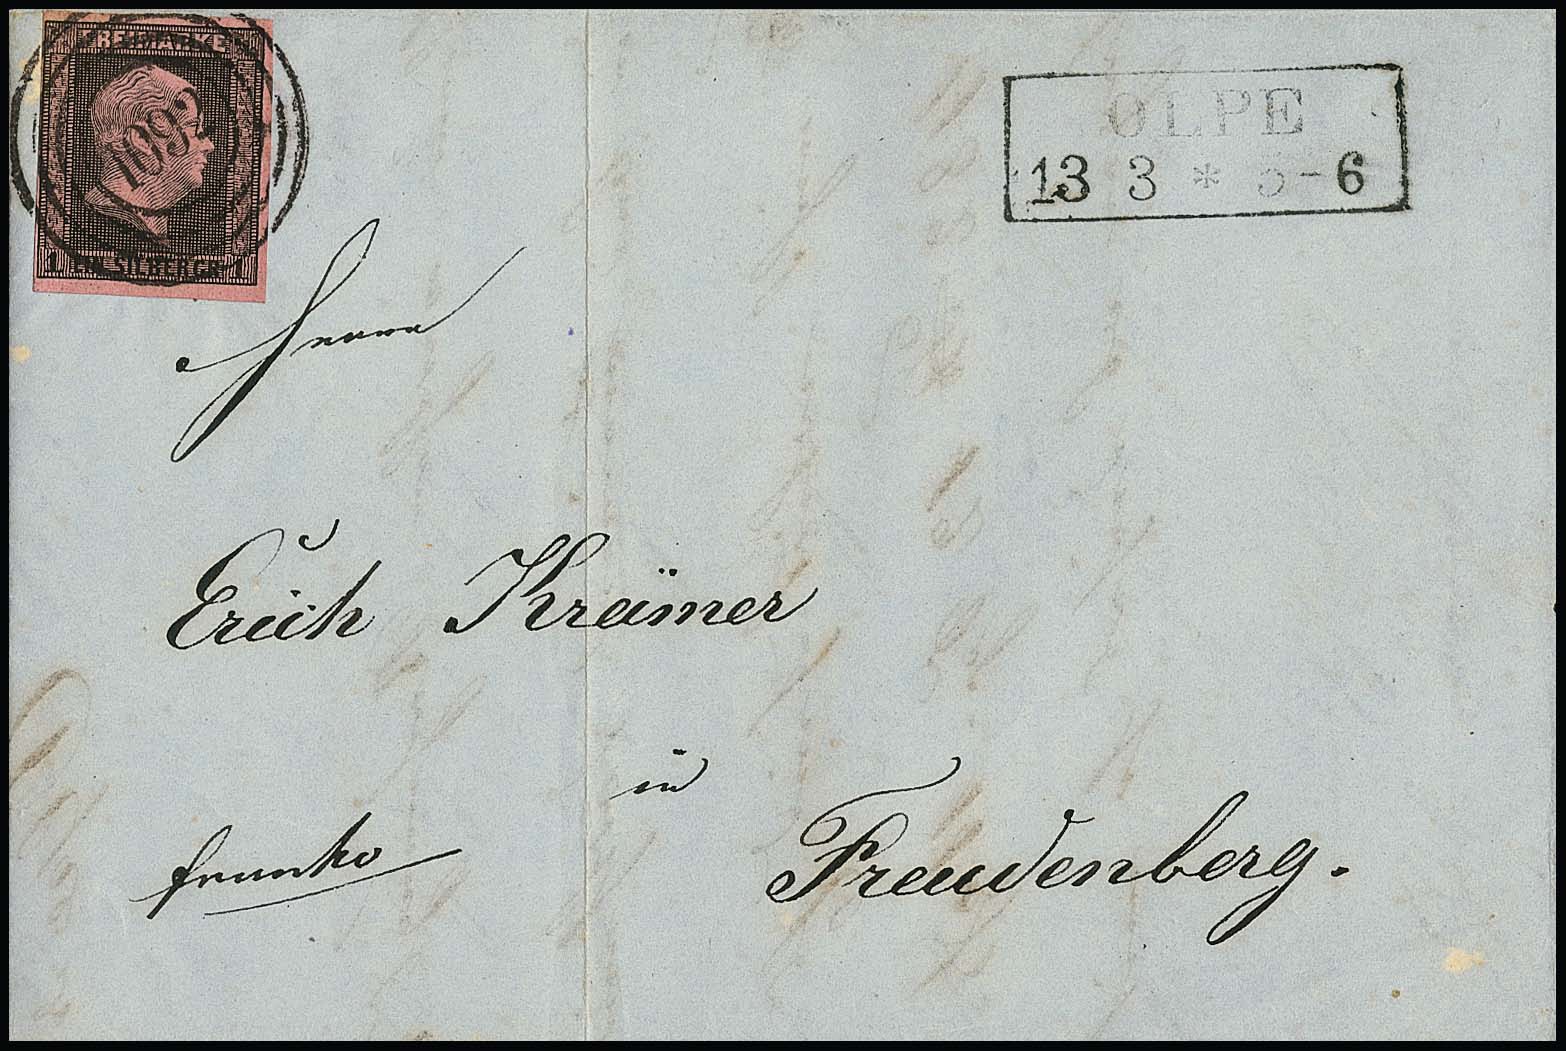 FREIMARKE
1092
1 EIN SILBERGR. 1
OLPE
13 3 * 5-6
Herrn
Erich Krämer
in
franko
Freudenberg.